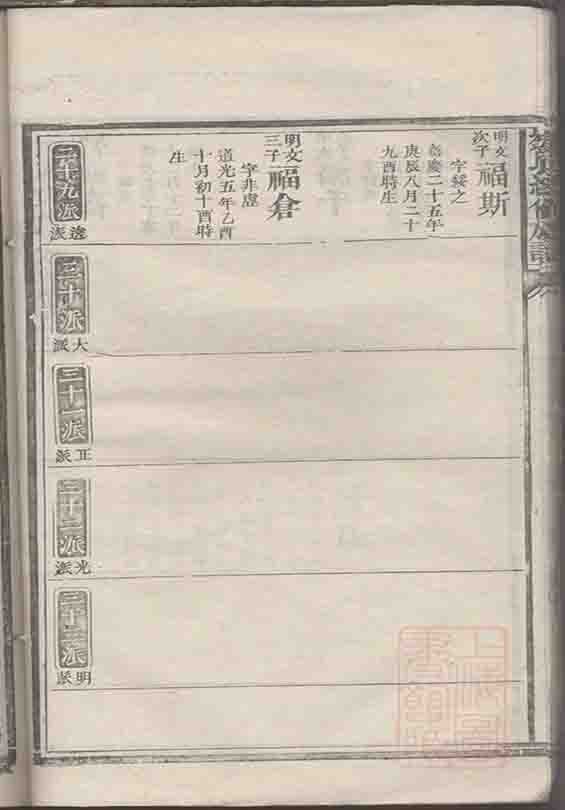 明文
次子
福斯
字綏之
嘉慶二十五年
庚辰八月二十
九酉時生
明文
三子
福倉
字非虛
道光五年乙酉
十月初十酉時
生
二十九派
逵派
三十派
大派
三十一派
正派
三十二派
光派
三十三派
明派